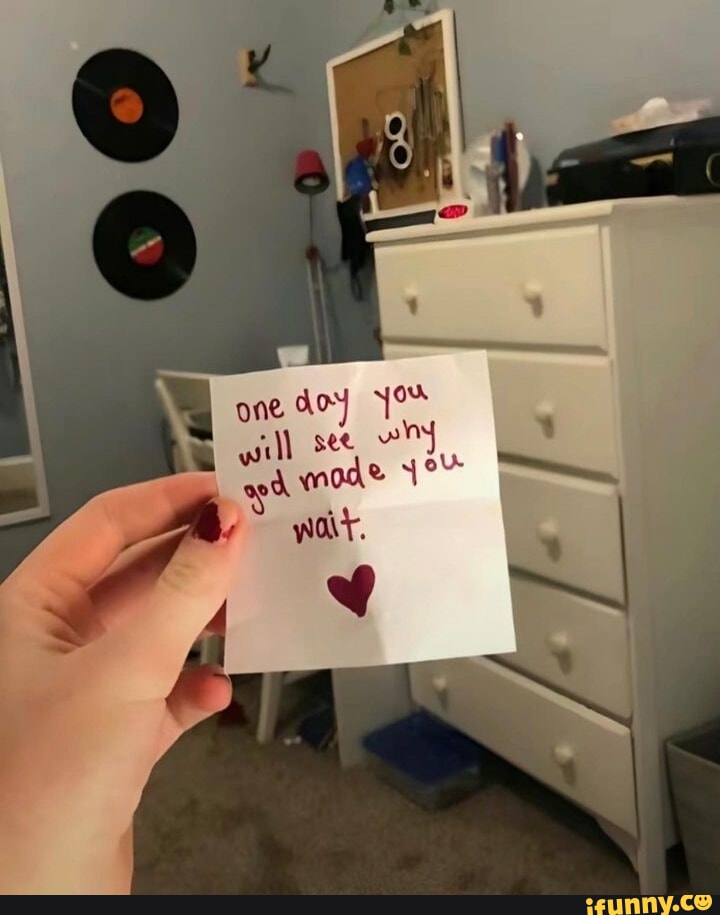 one day you
will see why
god made you
wait.
ifunny.co